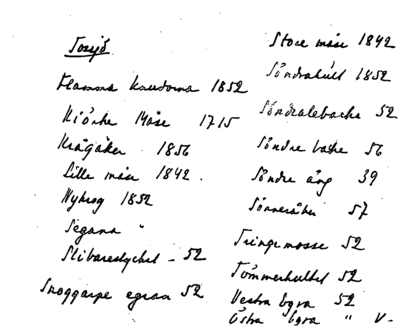 Torsjö
Flamma kaudorna 1852
Kiörke Måse 1715
Kragåker 1856
Lille måse 1842.
Nykrog 1852
Segarna "
Slibarestycket - 52
Snoggarpe egran 52
Store måse 1842
Söndrahult 1852
Söndralebacke 52
Söndre backe 56
Söndre äng 39
Sönneråker 57
Tringemosse 52
Tömmerhultet 52
Vestra bgra 52
Östra bgra " V-